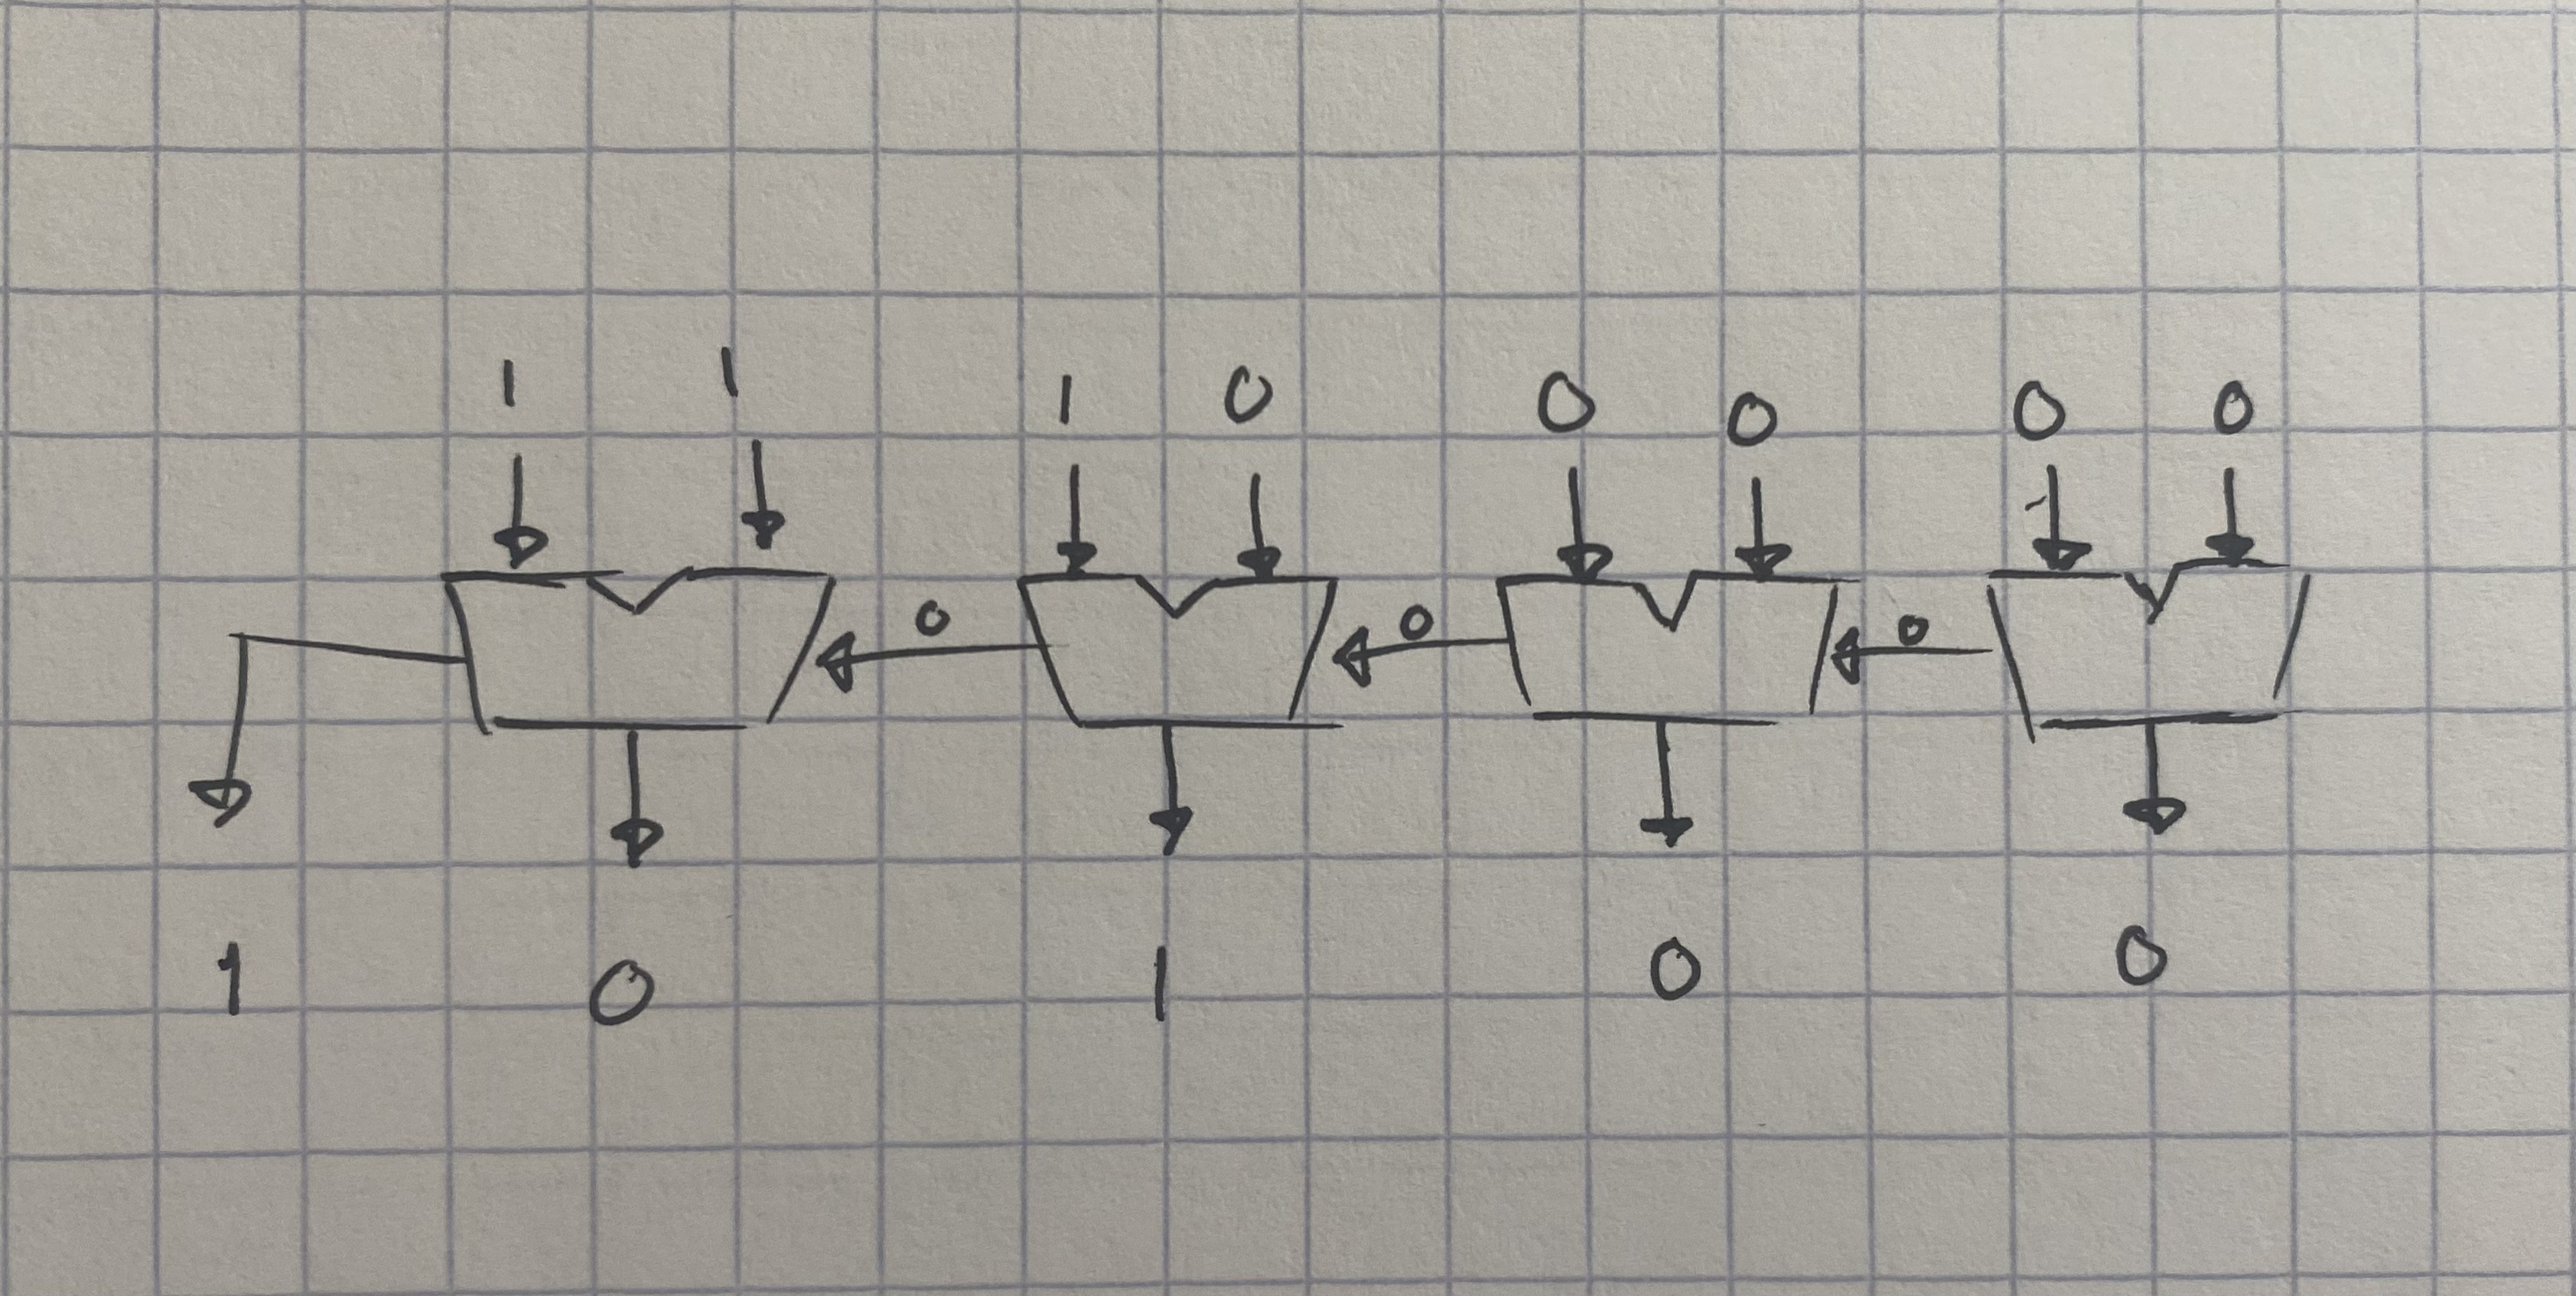 1 1 1 0 0 0 0 0
0 0 0
1 0 1 0 0